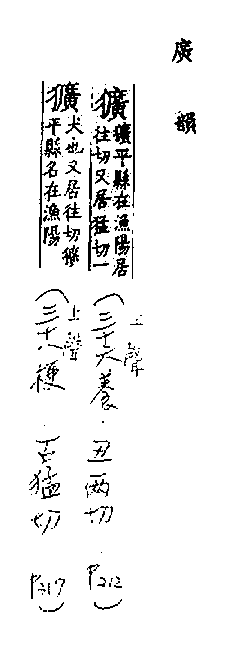 廣韻
獷 獷平縣在漁陽居
往切又居猛切一
上聲
(三十六養.丑兩切 P.212)
獷 犬也又居往切獷
平縣名在漁陽
上聲
(三十八梗.古猛切 P317)